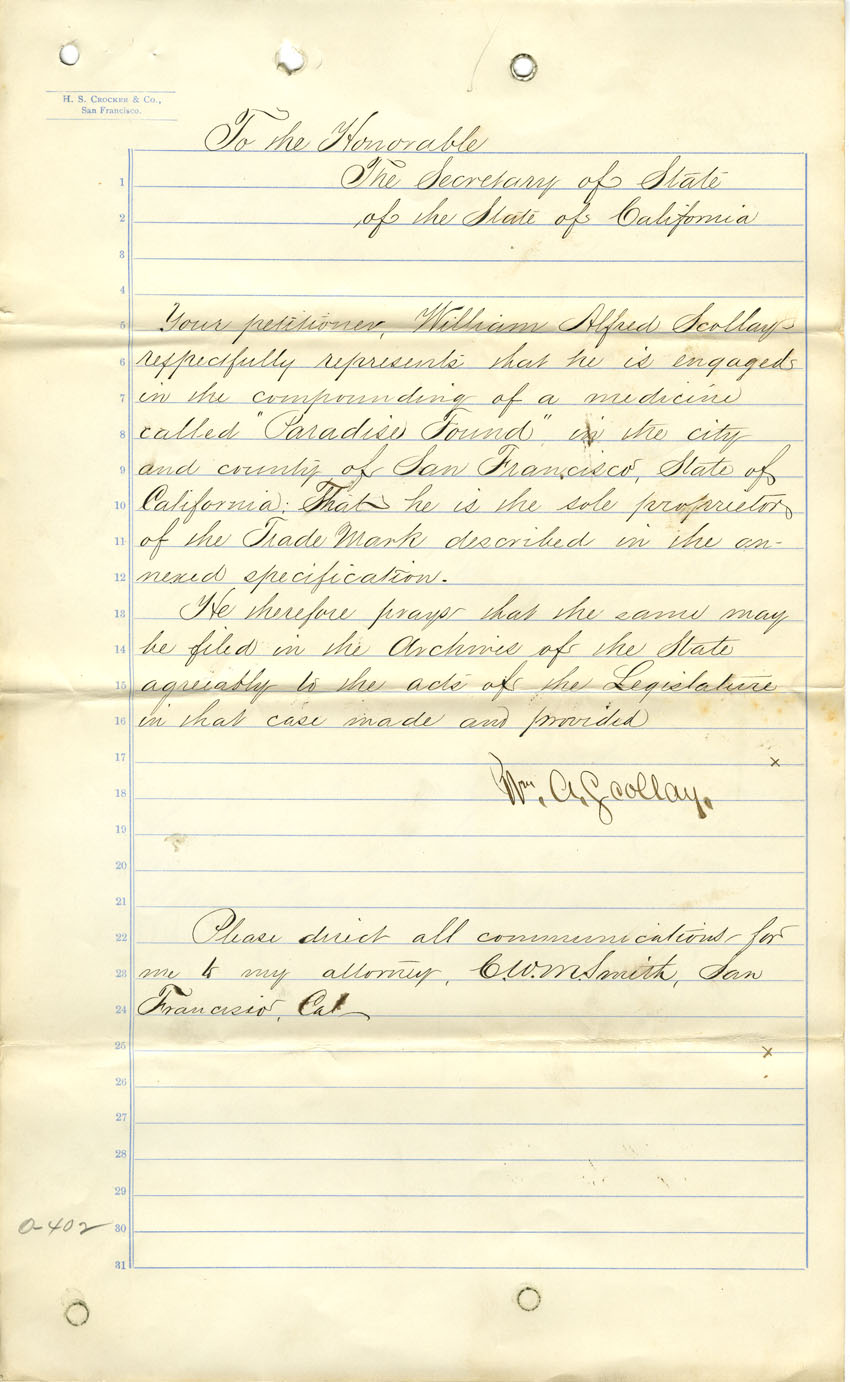 H. S. CROCKER & CO.,
San Francisco.
To the Honorable
1 The Secretary of State
2 of the State of California
3
4
5 Your petitioner, William Alfred Scollay
6 respectfully represents that he is engaged
7 in the compounding of a medicine
8 called "Paradise Found" in the city
9 and county of San Francisco, State of
10 California: That he is the sole proprietor
11 of the Trade Mark described in the an-
12 nexed specification.
13 He therefore prays that the same may
14 be filed in the Archives of the State
15 agreeably to the acts of the Legislature
16 in that case made and provided
17 x
18 Wm. A. Scollay.
19
20
21
22 Please direct all communications for
23 me to my attorney, C.W.M. Smith, San
24 Francisco, Cal
25 x
26
27
28
29
0-402 30
31